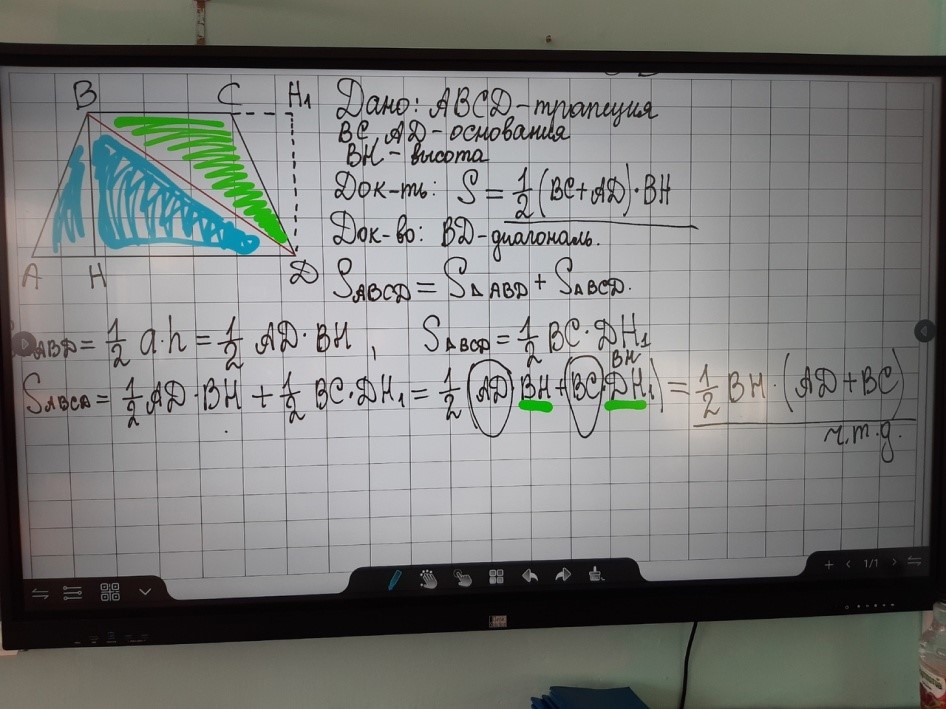 B C H₁
A H D
Дано: ABCD-трапеция
BC, AD-основания
BH-высота
Док-ть: S = 1/2 (BC+AD)·BH
Док-во: BD-диагональ.
S ABCD = S△ABD + S△BCD.
△ABD = 1/2 a·h = 1/2 AD·BH , S△BCD = 1/2 BC·DH₁
BH
S ABCD = 1/2 AD·BH + 1/2 BC·DH₁ = 1/2 (AD·BH + BC·DH₁) = 1/2 BH·(AD+BC)
ч.т.д.
1/1